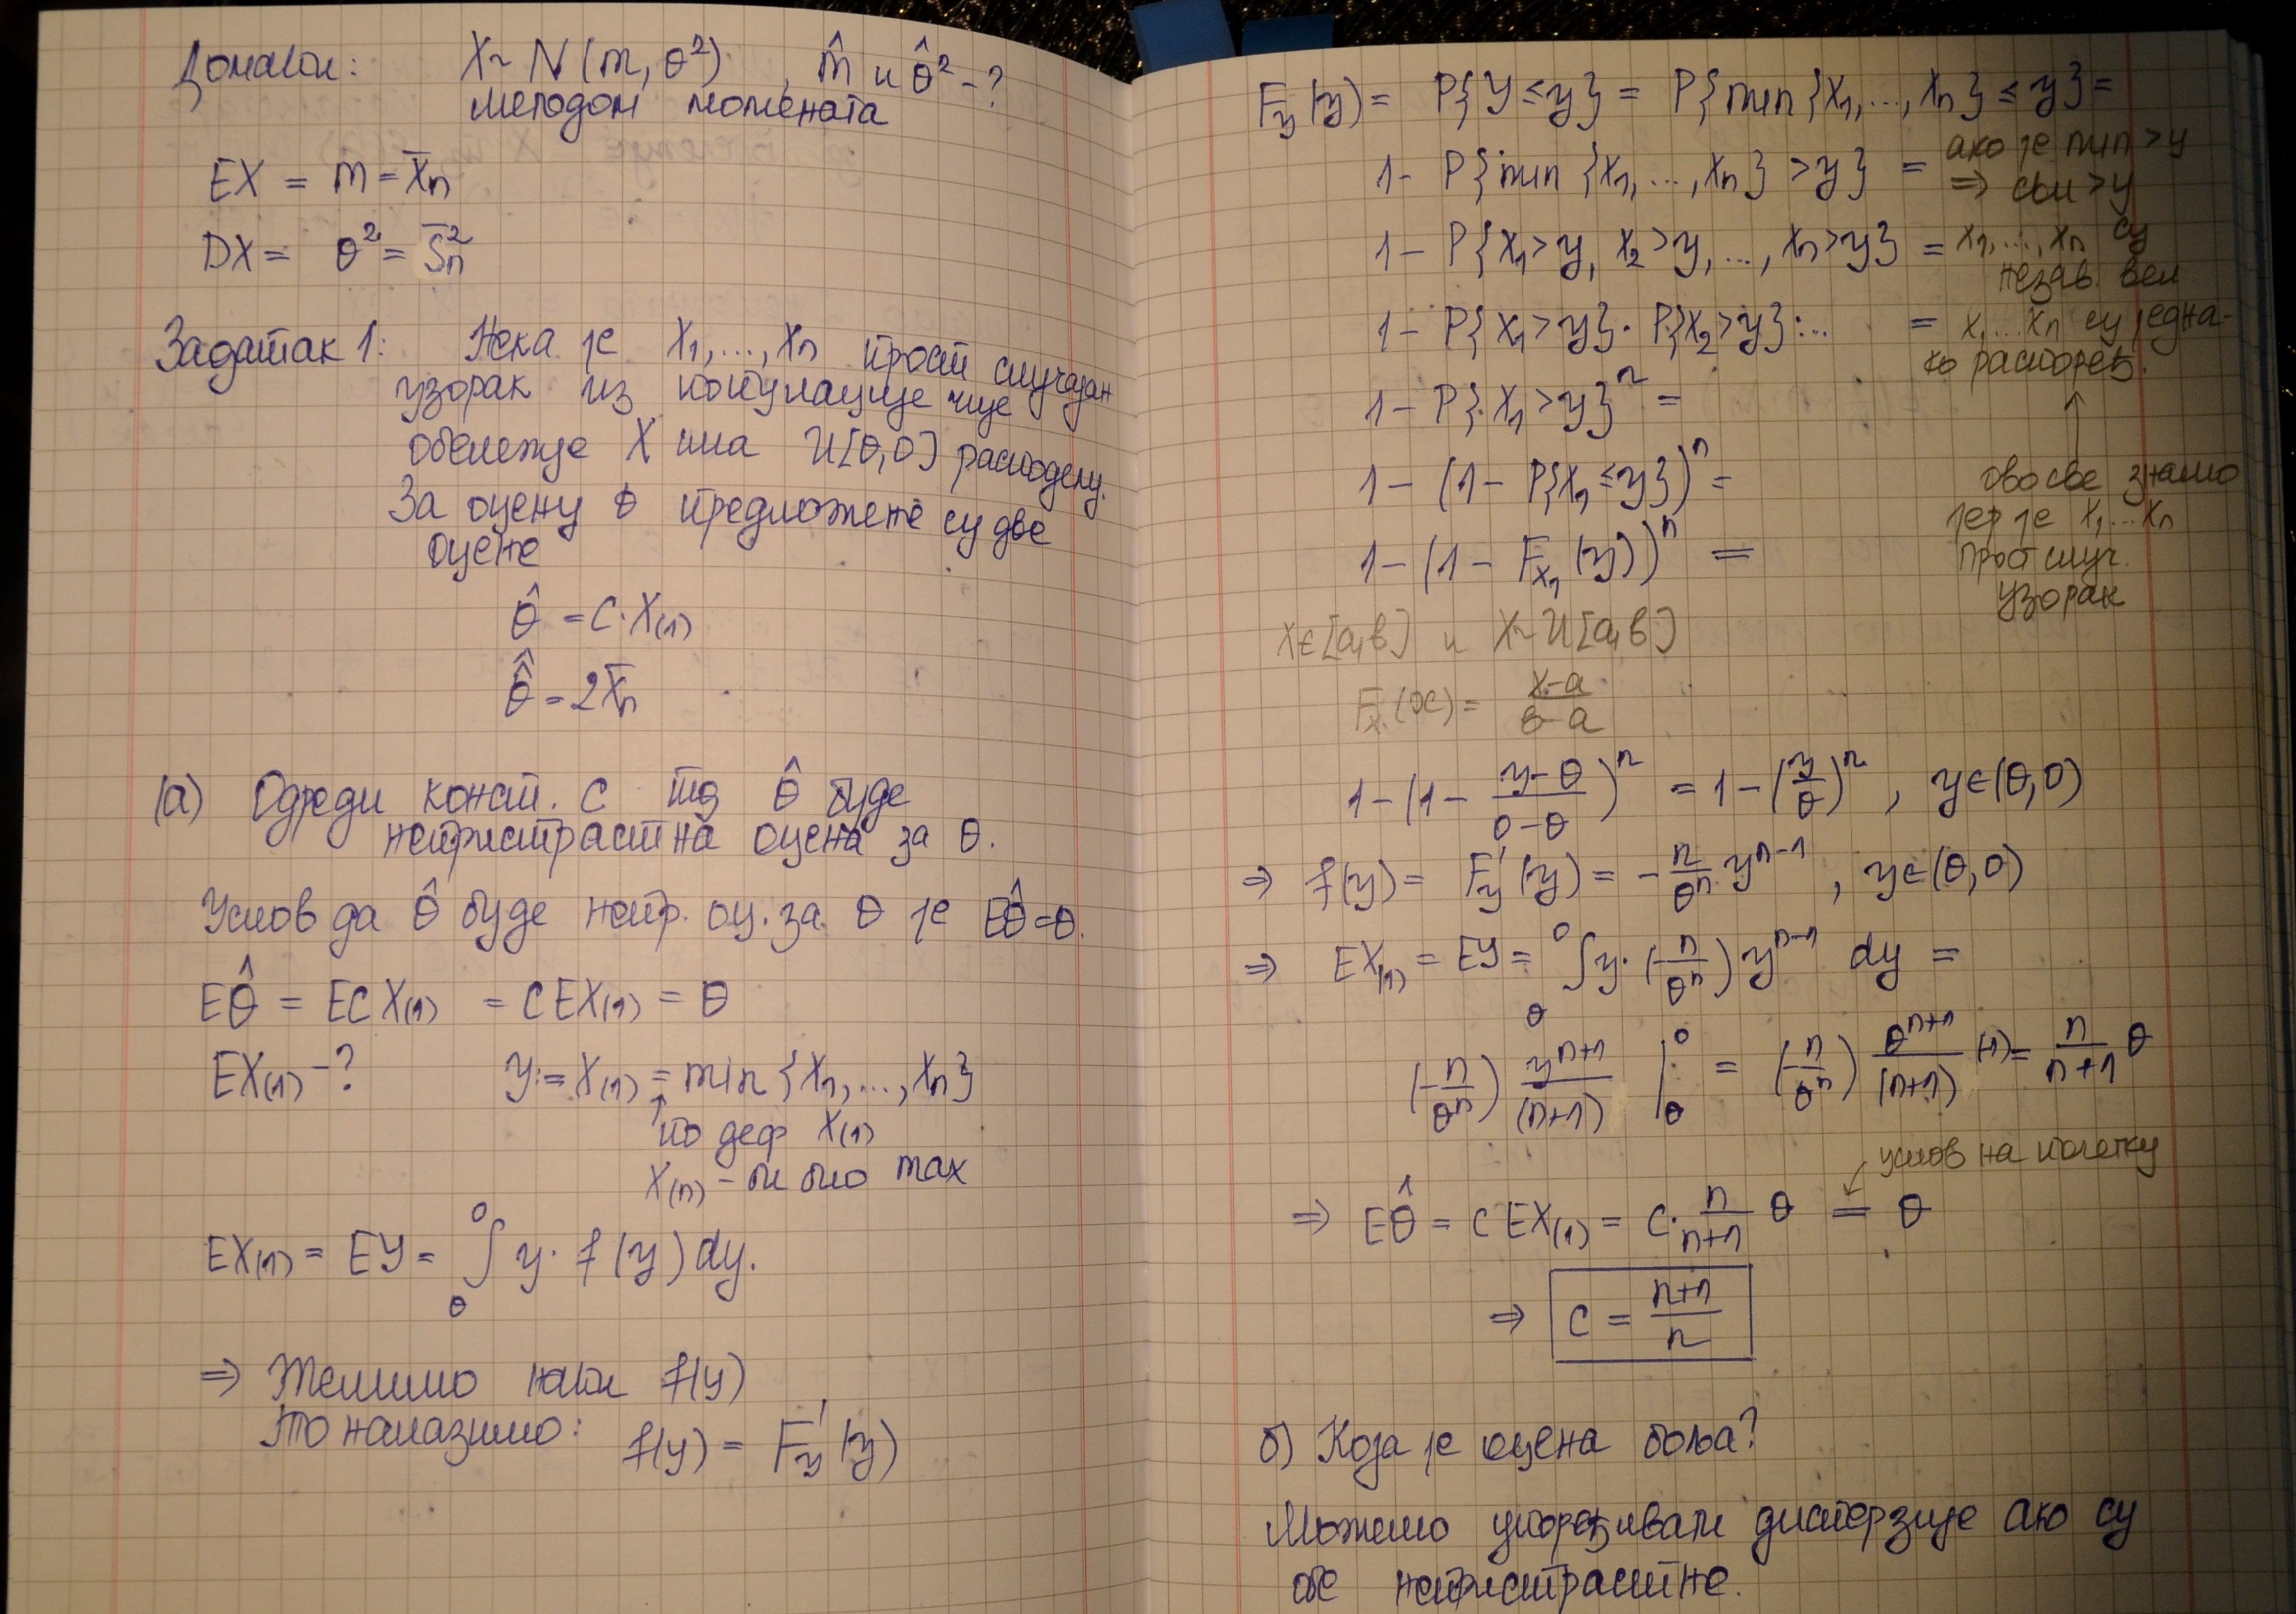 Домаћи: X~N(m, θ²), m̂ и θ̂² - ?
методом момената
EX = m = X̄n
DX = θ² = S̄n²
Задатак 1: Нека је X1,...,Xn прост случајан
узорак из популације чије
обележје X има U[θ,0] расподелу.
За оцену θ предложене су две
оцене
θ̂ = C·X(1)
θ̂̂ = 2X̄n
(а) Одреди конст. C тд θ̂ буде
непристрастна оцена за θ.
Услов да θ̂ буде непр. оц. за θ је Eθ̂=θ.
Eθ̂ = ECX(1) = CEX(1) = θ
EX(1) -? Y:= X(1) = min{X1,...,Xn}
↑ по деф X(1)
X(n) - би био max
EX(1) = EY = ∫_θ^0 y·f(y)dy.
⇒ Желимо наћи f(y)
То налазимо: f(y) = F'y(y)
Fy(y) = P{Y≤y} = P{min{X1,...,Xn} ≤ y} =
1- P{min{X1,...,Xn} > y} = ако је min > y
⇒ сви > y
1- P{X1>y, X2>y,...,Xn>y} = X1,...,Xn су
незав. вел
1- P{X1>y}·P{X2>y}·... = X1...Xn су једна-
ко распоређ.
1- P{X1>y}ⁿ =
↑
1-(1- P{X1≤y})ⁿ =
ово све знамо
јер је X1...Xn
прост случ.
узорак
1-(1- Fx1(y))ⁿ =
X∈[a,b] и X~U[a,b]
Fx(x) = (x-a)/(b-a)
1-(1- (y-θ)/(0-θ))ⁿ = 1-(y/θ)ⁿ, y∈(θ,0)
⇒ f(y) = F'y(y) = -n/θⁿ yⁿ⁻¹, y∈(θ,0)
⇒ EX(1) = EY = ∫_θ^0 y·(-n/θⁿ) yⁿ⁻¹ dy =
(-n/θⁿ) yⁿ⁺¹/(n+1) |_θ^0 = (-n/θⁿ) θⁿ⁺¹/(n+1) (-1) = n/(n+1) θ
услов на почетку
⇒ Eθ̂ = CEX(1) = C· n/(n+1) θ = θ
⇒ C = (n+1)/n
б) Која је оцена боља?
Можемо упоређивати дисперзије ако су
обе непристрастне.